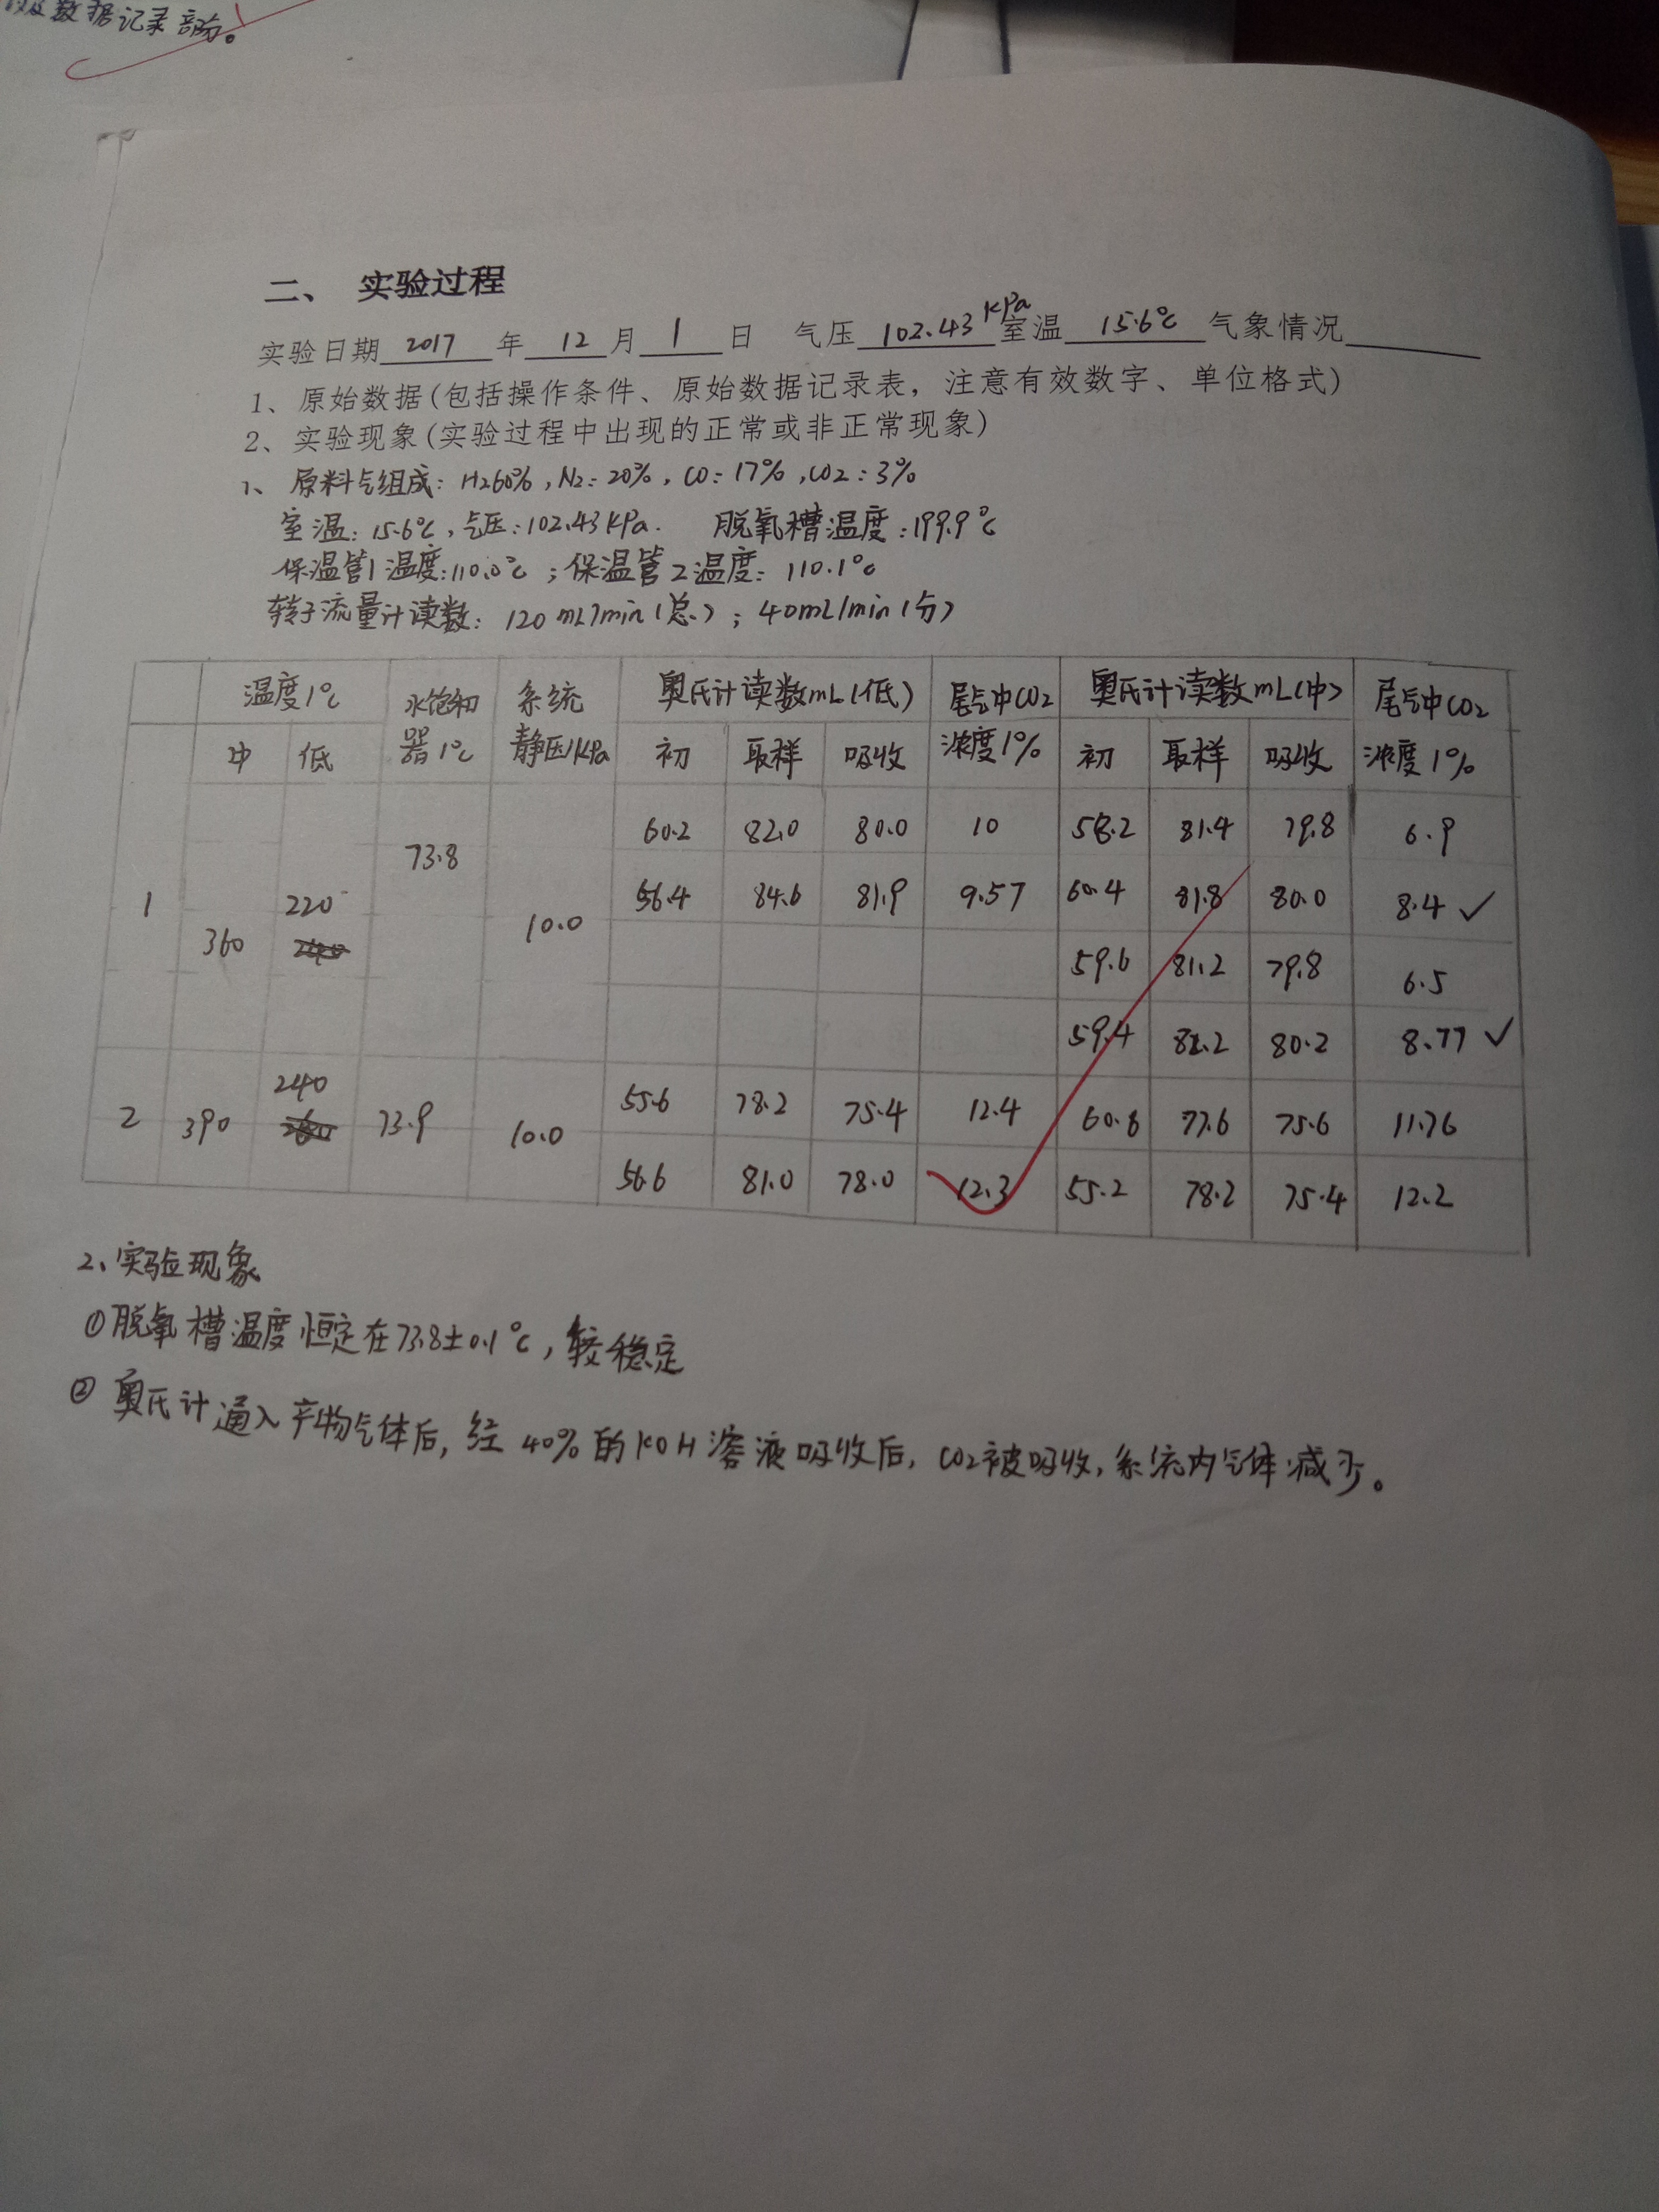 数据记录部分。
二、 实验过程
实验日期2017年12月1日 气压102.43KPa室温15.6℃气象情况
1、原始数据(包括操作条件、原始数据记录表，注意有效数字、单位格式)
2、实验现象(实验过程中出现的正常或非正常现象)
1、原料气组成：H260%，N2：20%，CO：17%，CO2：3%
室温：15.6℃，气压：102.43KPa. 脱氧槽温度：199.9℃
保温管1温度：110.0℃；保温管2温度：110.1℃
转子流量计读数：120mL/min(总)；40mL/min(分)
温度/℃ 水饱和器/℃ 系统静压/KPa 奥氏计读数mL(低) 尾气中CO2浓度/% 奥氏计读数mL(中) 尾气中CO2浓度/%
中 低 初 取样 吸收 初 取样 吸收
1 360 220 73.8 10.0 60.2 82.0 80.0 10 58.2 81.4 79.8 6.9
56.4 84.6 81.9 9.57 60.4 81.8 80.0 8.4 ✓
59.6 81.2 79.8 6.5
59.4 82.2 80.2 8.77 ✓
2 390 240 73.9 10.0 55.6 78.2 75.4 12.4 60.8 77.6 75.6 11.76
56.6 81.0 78.0 12.3 55.2 78.2 75.4 12.2
2、实验现象
①脱氧槽温度恒定在73.8±0.1℃，较稳定
②奥氏计通入产物气体后，经40%的KOH溶液吸收后，CO2被吸收，系统内气体减少。